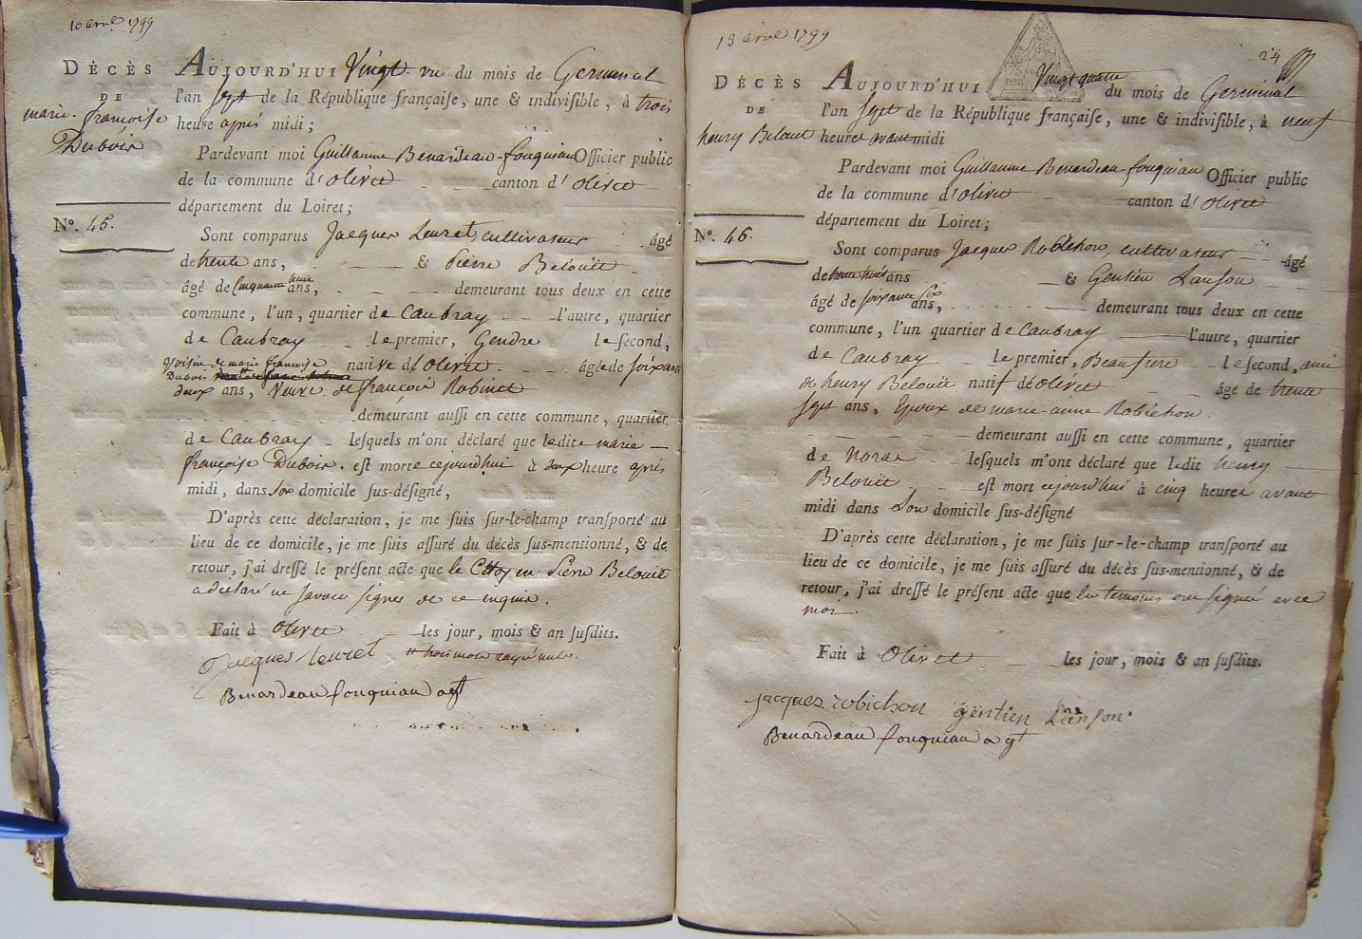 10 avril 1799
DÉCÈS
DE
marie françoise
Dubois
Nº. 45.
AUJOURD'HUI Vingt un du mois de Germinal
l'an sept de la République françaiſe, une & indiviſible, à trois
heure après midi;
Pardevant moi Guillaume Benardeau-fouquiau Officier public
de la commune d'olivet canton d'olivet
département du Loiret;
Sont comparus Jacques Leuret, cultivateur âgé
de trente ans, & Pierre Belouët
âgé de Cinquante ans, demeurant tous deux en cette
commune, l'un, quartier de Caubray l'autre, quartier
de Caubray le premier, Gendre le ſecond,
Voisin de marie françoise
Dubois native d'olivet âgée de soixante
deux ans, Veuve de françois Robinet
demeurant auſſi en cette commune, quartier
de Caubray leſquels m'ont déclaré que ladite marie
françoise Dubois est morte cejourd'hui à deux heure après
midi, dans son domicile ſus-déſigné,
D'après cette déclaration, je me ſuis ſur-le-champ tranſporté au
lieu de ce domicile, je me ſuis aſſuré du décès ſus-mentionné, & de
retour, j'ai dreſſé le préſent acte que le Citoyen Pierre Belouët
a déclaré ne savoir signer de ce enquis.
Fait à Olivet les jour, mois & an ſuſdits.
jacques leuret
Benardeau fouquiau agt
13 avril 1799
24
DÉCÈS
DE
henry Belouet
Nº. 46.
AUJOURD'HUI Vingt quatre du mois de Germinal
l'an sept de la République françaiſe, une & indiviſible, à neuf
heures avant midi
Pardevant moi Guillaume Benardeau-fouquiau Officier public
de la commune d'olivet canton d'olivet
département du Loiret;
Sont comparus Jacques Robichon, cultivateur âgé
de trente huit ans & Gentien Lanson
âgé de soixante six ans, demeurant tous deux en cette
commune, l'un quartier de Caubray l'autre, quartier
de Caubray le premier, Beaufrere le ſecond, ami
de henry Belouët natif d'olivet âgé de trente
sept ans, Epoux de marie-anne Robichon
demeurant auſſi en cette commune, quartier
de leſquels m'ont déclaré que ledit henry
Belouët est mort cejourd'hui à cinq heures avant
midi dans son domicile ſus-déſigné
D'après cette déclaration, je me ſuis ſur-le-champ tranſporté au
lieu de ce domicile, je me ſuis aſſuré du décès ſus-mentionné, & de
retour, j'ai dreſſé le préſent acte que les temoins ont signé avec
moi
Fait à Olivet les jour, mois & an ſuſdits.
jacques robichon gentien Lanson
Benardeau fouquiau agt